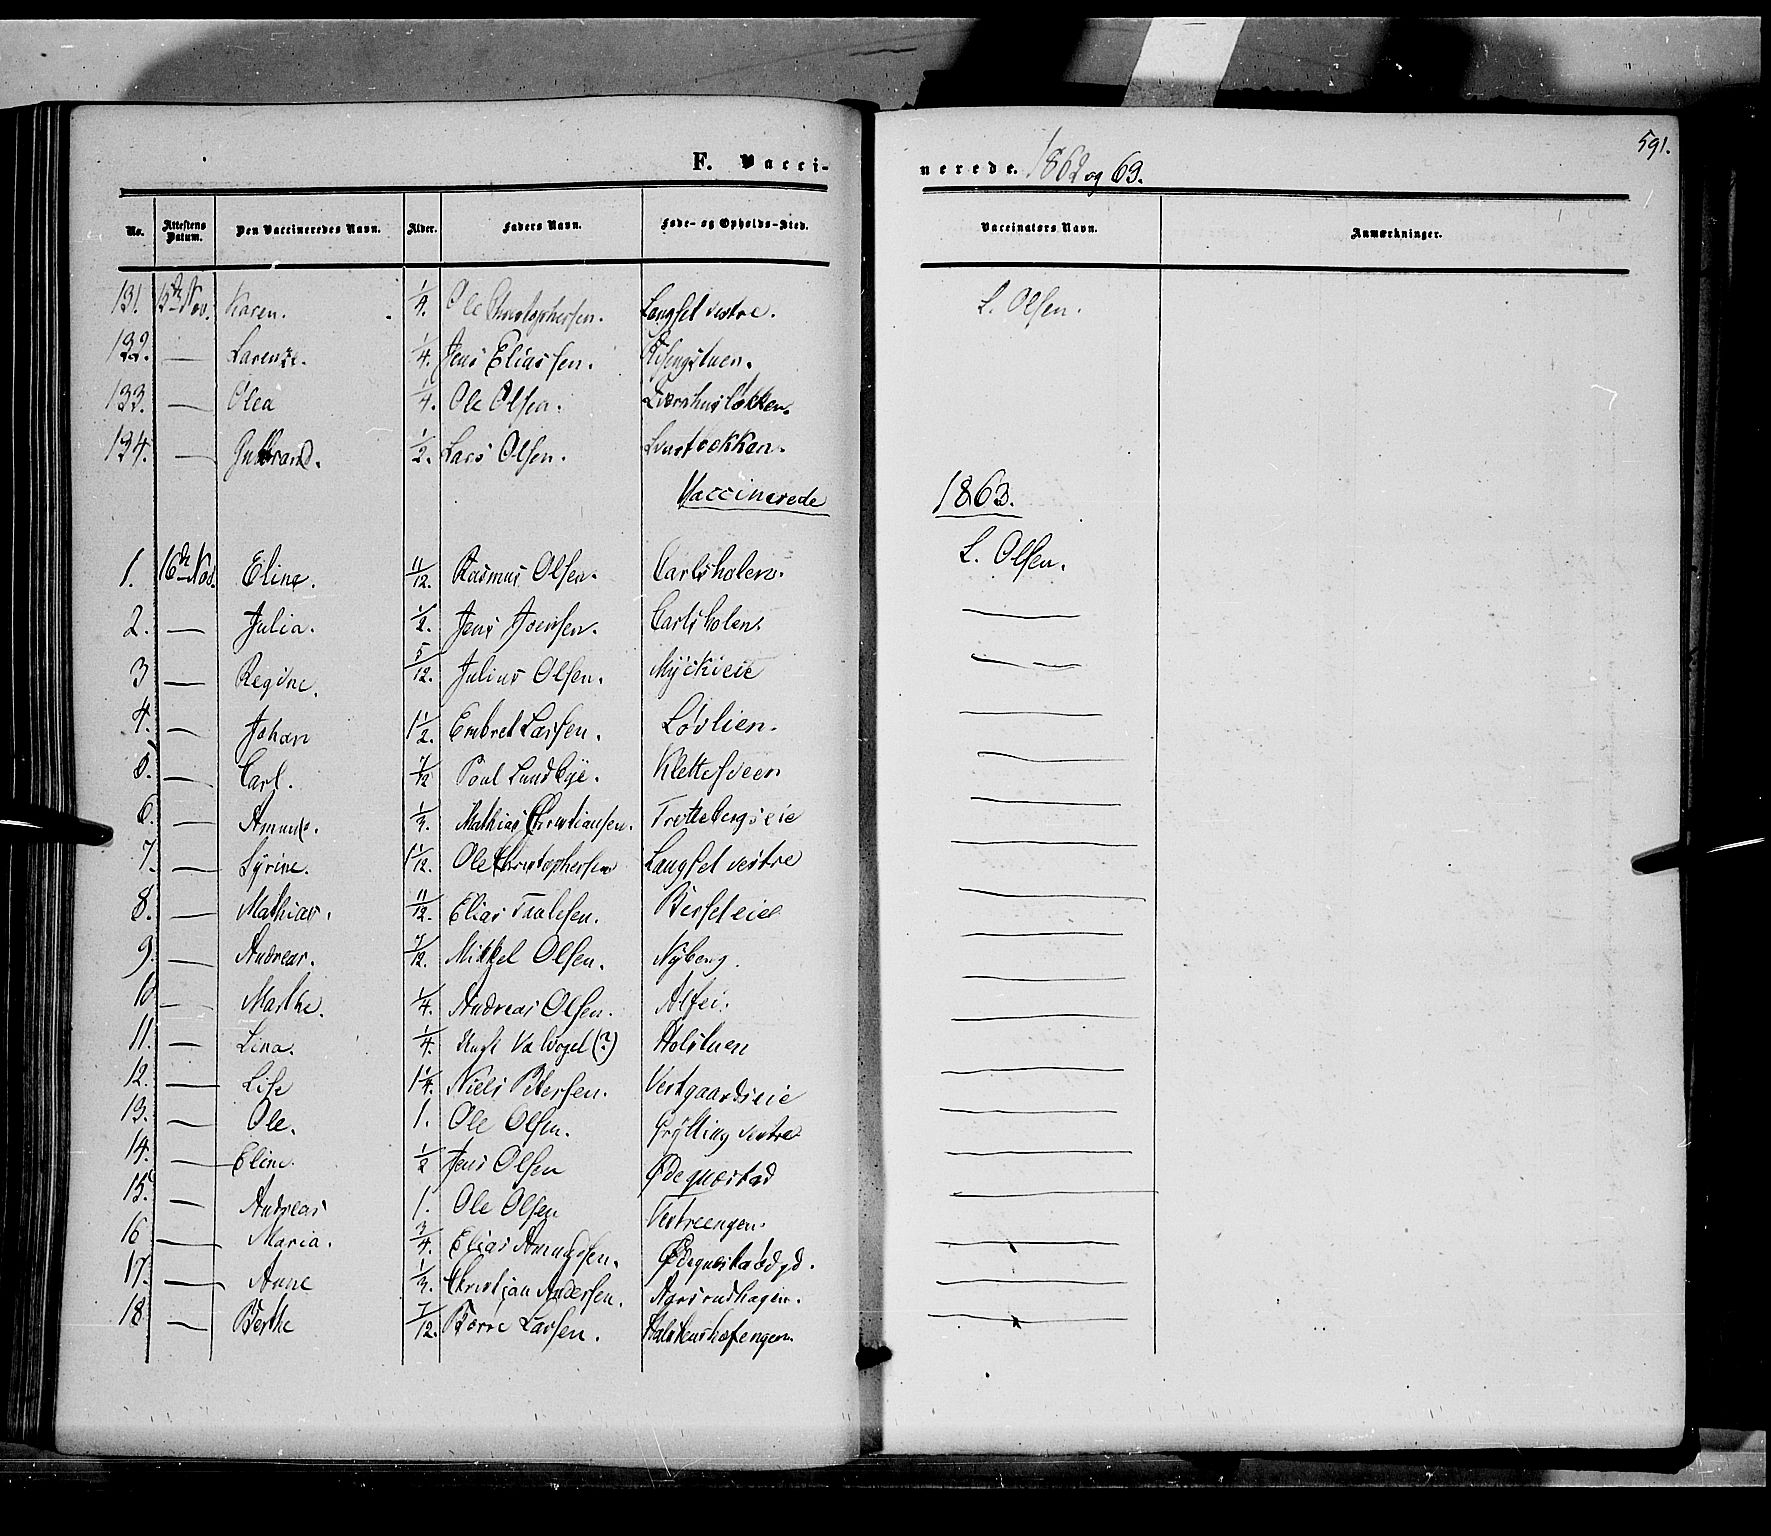 591.
F. Vaccinerede. 1862 og 63.
No. Attestens Datum. Den Vaccineredes Navn. Alder. Faders Navn. Føde- og Opholds-Sted. Vaccinators Navn. Anmærkninger.
131. 15de Nov. Karen. 1/4. Ole Christophersen. Langset vestre. L. Olsen.
132. — Larense. 1/4. Jens Eliassen.
133. — Olea 1/4. Ole Olsen.
134. — Gulbrand. 1/2. Lars Olsen.
Vaccinerede 1863.
1. 16de Nov. Eline. 11/12. Rasmus Olsen. Carlsholen. L. Olsen.
2. — Julia. 1/2. Jens Jensen. Carlsholen. —
3 — Regine. 5/12. Julius Olsen. Myckieie —
4. — Johan 1 1/2. Embret Larsen. Løvlien. —
5. — Carl. 7/12 Poul Lundbye. Klettesveen —
6. — Amund. 1/3. Mathias Christiansen. Trottebergseie —
7. — Syrine. 1 1/12. Ole Christophersen Langset vestre —
8. — Mathias. 11/12. Elias Paulesen. —
9. — Andreas. 7/12. Mikkel Olsen. Nyberg. —
10 — Marthe. 1/4. Andreas Olsen. —
11. — Lina. 1/4. (?) Holstuen —
12. — Lise 1 1/4. Niels Petersen. Vestgaardseie —
13. — Ole. 1. Ole Olsen. Grytting vestre —
14. — Eline. 1/2 Jens Olsen Ødequestad —
15. — Andreas 1. Ole Olsen Vestreengen. —
16 — Maria. 3/4. Elias Amundsen. —
17. — Anne 1/3. Christjan Andersen. Aasrudhagen. —
18 — Berthe 7/12. Børre Larsen. —